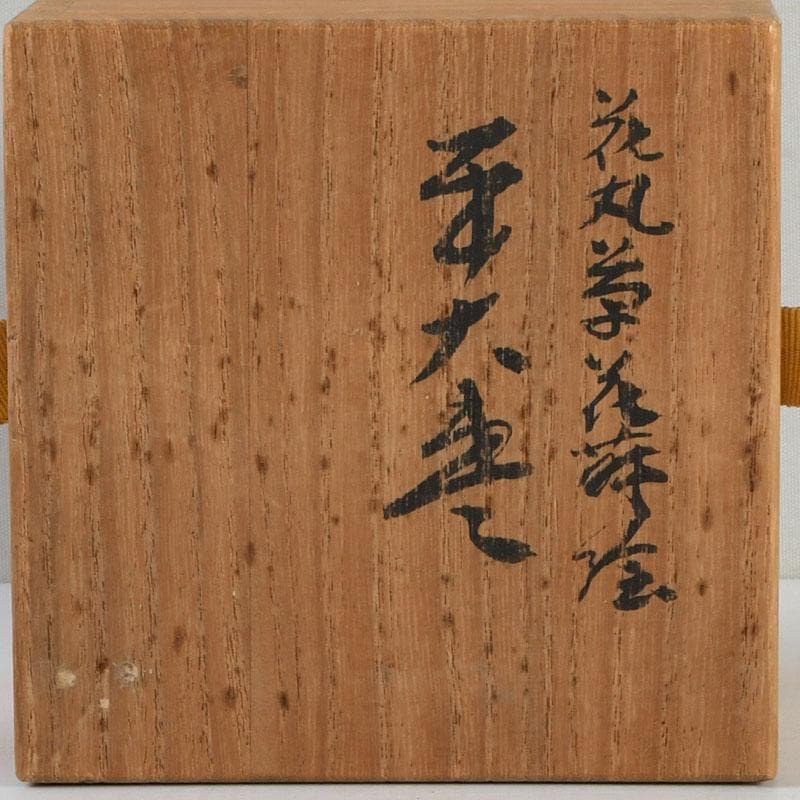 花丸草花蒔絵
平大棗